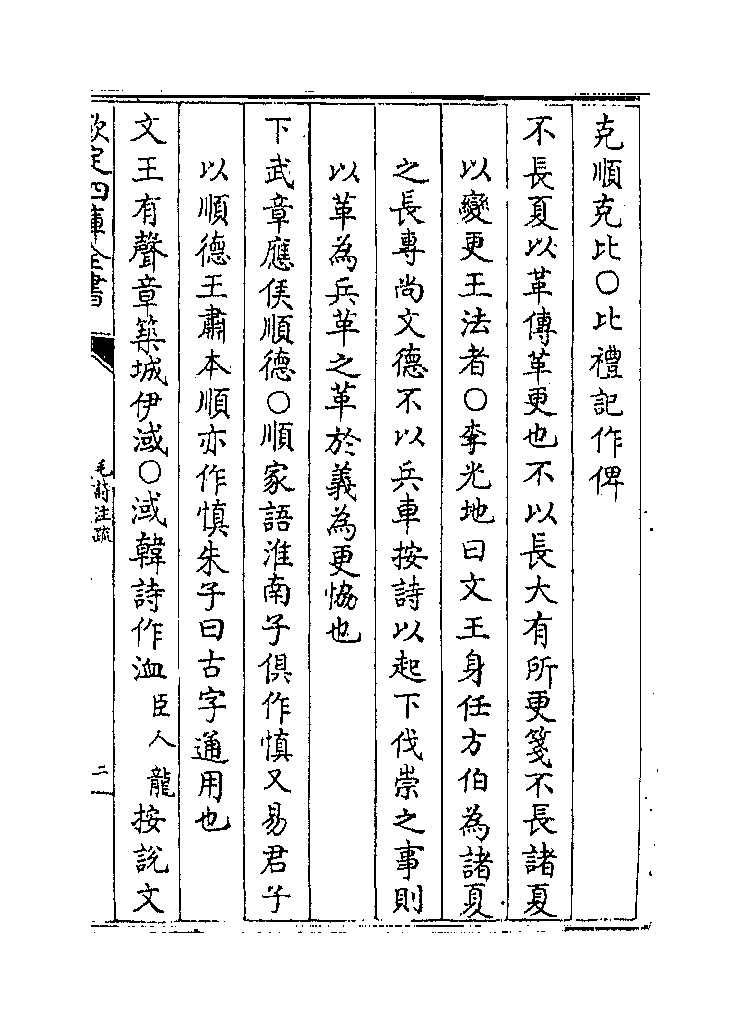 克順克比○比禮記作俾
不長夏以革傳革更也不以長大有所更箋不長諸夏
以變更王法者○李光地曰文王身任方伯為諸夏
之長專尚文德不以兵車按詩以起下伐崇之事則
以革為兵革之革於義為更恊也
下武章應侯順德○順家語淮南子俱作慎又易君子
以順德王肅本順亦作慎朱子曰古字通用也
文王有聲章築城伊淢○淢韓詩作洫臣人龍按說文
欽定四庫全書
毛詩注疏
二